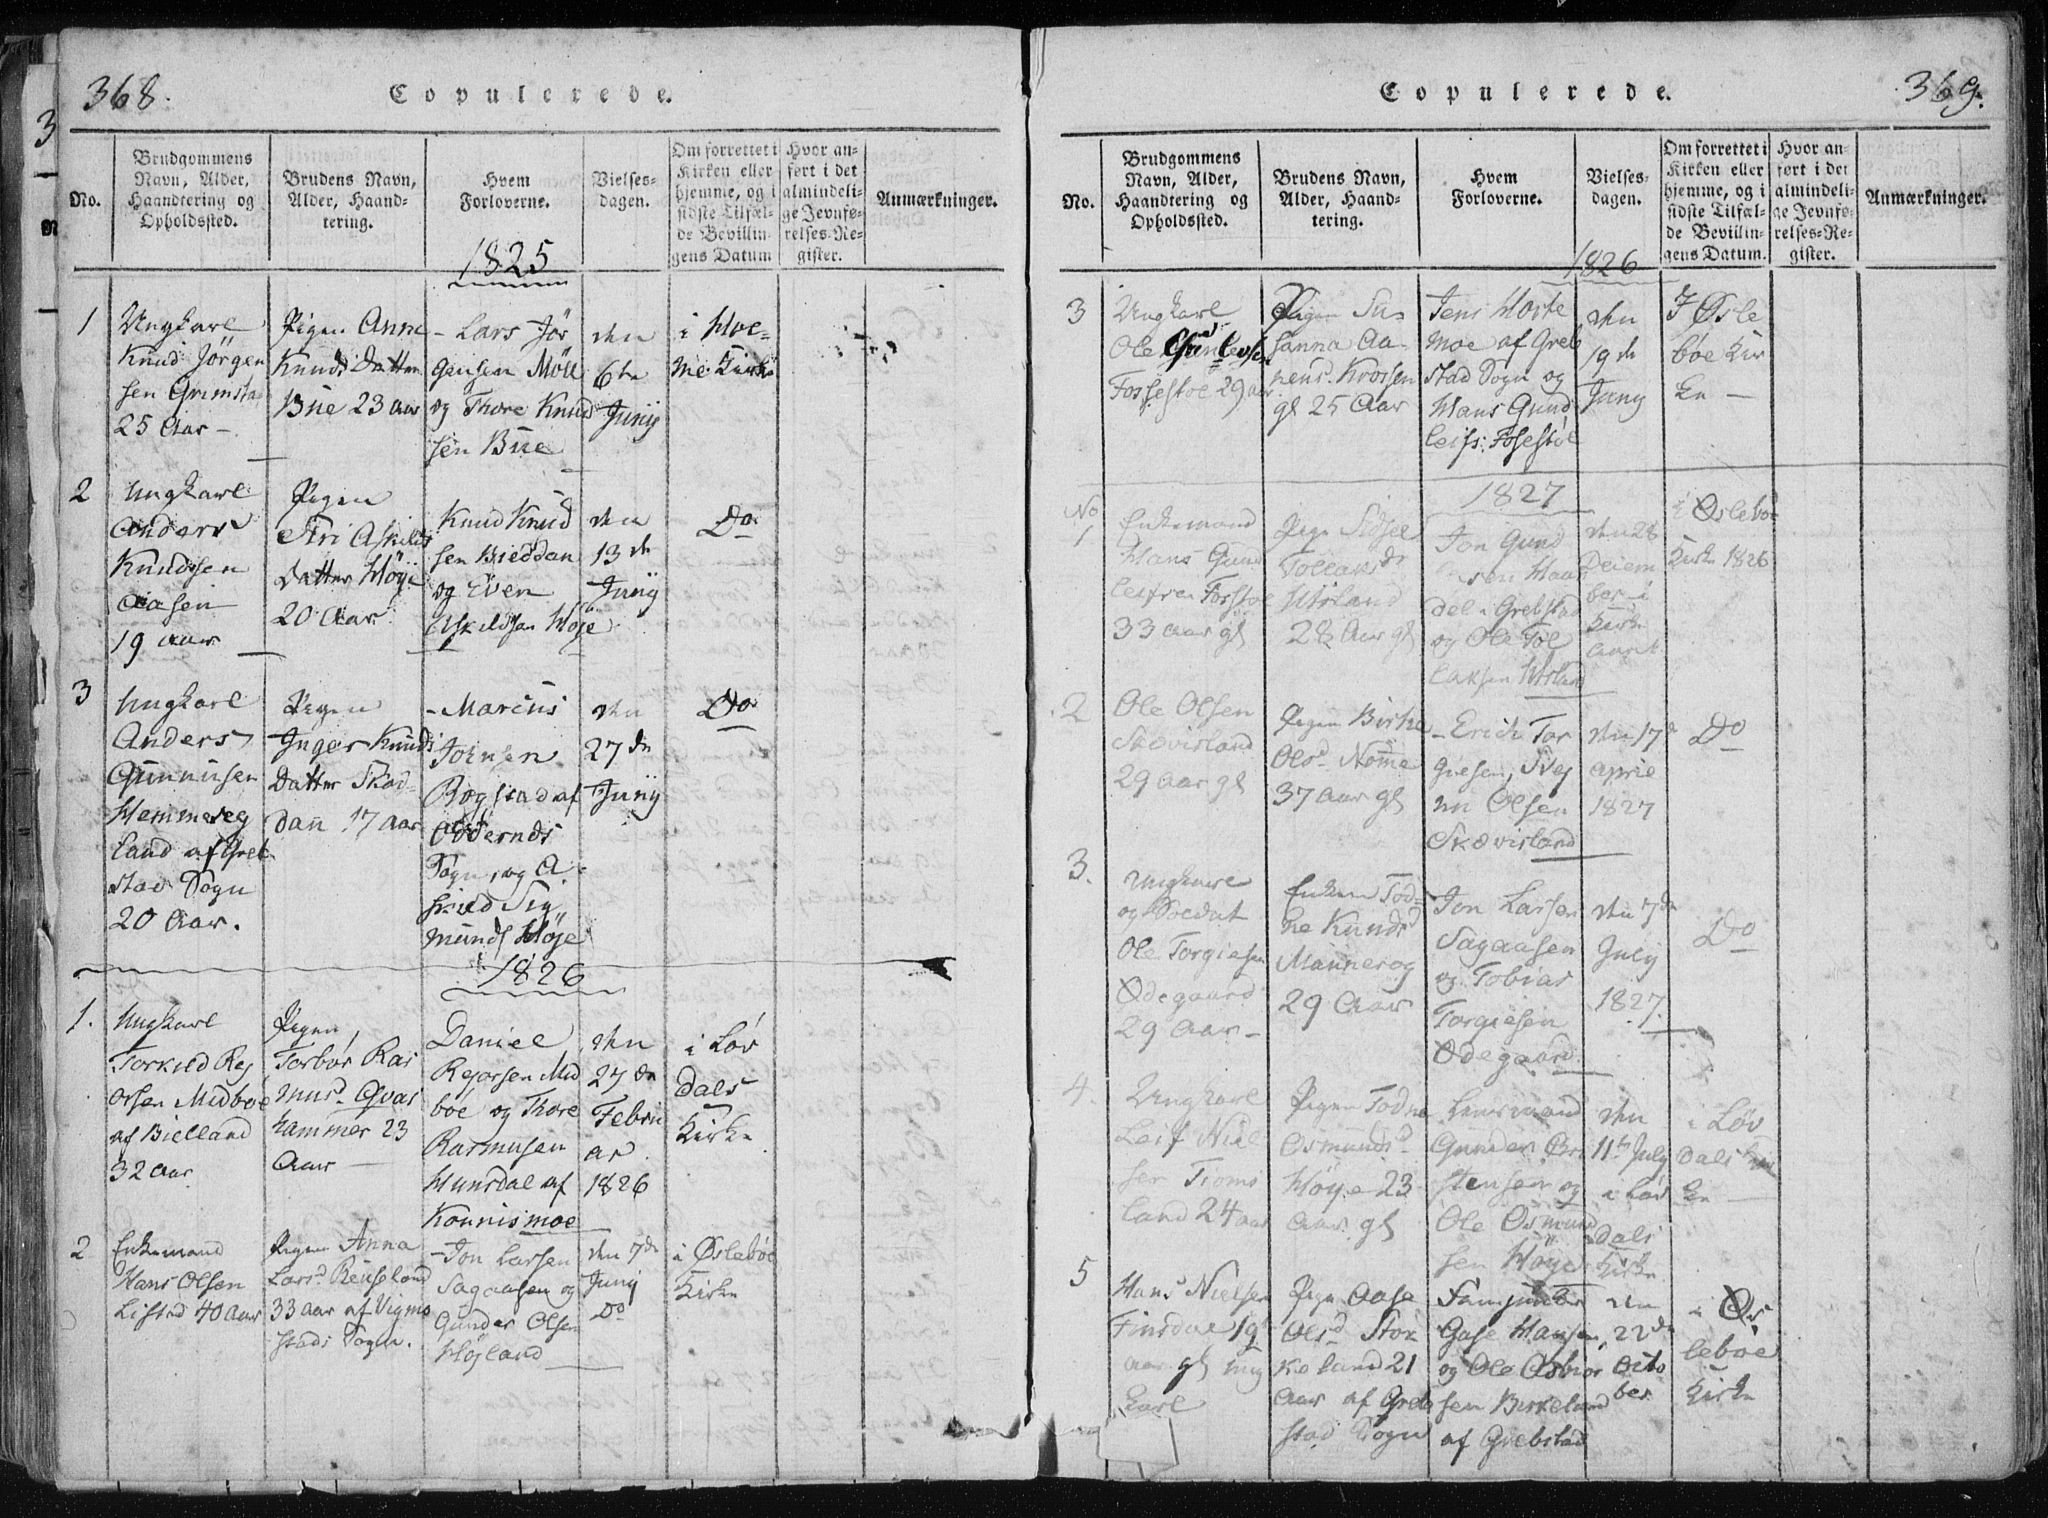 368.
Copulerede.
No.
Brudgommens
Navn, Alder,
Haandtering og
Opholdssted.
Brudens Navn,
Alder, Haand-
tering.
Hvem
Forloverne.
Vielses-
dagen.
Om forrettet i
Kirken eller
hjemme, og i
sidste Tilfæl-
de Bevillin-
gens Datum
Hvor an-
ført i det
almindeli-
ge Jevnfø-
relses-Re-
gister.
Anmærkninger.
1825
1
Ungkarl
Knud Jörgen
sen Grimsta
25 Aar –
Pigen Anne
Knuds Datter
Bue 23 aar
– Lars Jör
gensen Möll
og Thore Knud
sen Bue
den
6te
Junij
i Hoe-
me Kirke
2
Ungkarl
Anders
Knudsen
Aasen
19 aar
Pigen
Siri Askilds
Datter Höye
20 Aar
Knud Knud
sen Bieddan
og Even
Askildsen Höje
den
13de
Junij
Do
3
Ungkarl
Anders
Gunnusen
Hemmereg
land af Greb
stad Sogn
20 Aar.
Pigen
Inger Knuds
Datter Skad-
dan 17 aar
– Marcus
Tornsen
Rogstad af
Oddernds
Sogn, og A-
skild Sig
munds Höje
den
27de
Junij
Do
1826
1.
Ungkarl
Torkild Rej
orsen Midböe
af Bielland
32 Aar
Pigen
Torbor Ras
musd. Qvas
hammer 23
Aar –
Daniel
Rejorsen Mid
böe og Thore
Rasmusen
Hunsdal af
Konnismoe
den
27de
Febru
ar
1826
i Löv
dals
Kirke
2
Enkemand
Hans Olsen
Listad 40 Aar
Pigen Anna
Larsd. Reuseland
33 aar af Vigmo
stads Sogn.
– Jon Larsen
Sagaasen og
Gunder Olsen
Höjland
den 7de
Junij
Do
i Øslebøe
Kirke
369.
Copulerede.
No.
Brudgommens
Navn, Alder,
Haandtering og
Opholdssted.
Brudens Navn,
Alder, Haand-
tering.
Hvem
Forloverne.
Vielses-
dagen.
Om forrettet i
Kirken eller
hjemme, og i
sidste Tilfæl-
de Bevillin-
gens Datum.
Hvor an-
ført i det
almindeli-
ge Jevnfø-
relses-Re-
gister.
Anmærkninger.
1826
3
Ungkarl
Ole Gunlevsen
Fossestöe 29 aar
Pigen Su-
sanna Aa-
nensd. Krossen
gl 25 Aar
Jens Horte
moe af Greb
stad Sogn og
Hans Gund
leifs: Fosestöl
den
19de
Junij
I Øsle
böe Kir
ke –
1827
No
1
Enkemand
Hans Gund
leifsen Forstöe
33 aar gl
Pigen Sidsel
Tollaksd
Usland
28 Aar gl
Jon Gund
sen Haa
del i Grebstad
og Ole Tol
laksen Usland
den 28
Decem
ber i
Kirke
i Øslebö
Kirke 1826
2
Ole Olsen
Skövisland
29 aar gl
Pigen Birthe
Olsd. Nome
37 aar gl
– Erich Tor
giesen, Svej
nu Olsen
Skövisland
den 17d
Aprie
1827
Do
3.
Ungkarl
og Soldat
Ole Torgiesen
Ødegaard
29 Aar –
Enken Tod-
ne Kunds
Mannerog
29 Aar
Jon Larsen
Sagaasen
og Tobias
Torgiesen
Ødegaard
den 7de
July
1827.
Do
4.
Ungkarl
Leif Niel
sen Tioms
land 24 aar
Pigen Todne
Osmundsd
Höye 23
aar gl
Lensmand
Gunder Br
stensen og
Ole Osmund
sen Höye
den
11te July
i Löv
dals
Kirke
i Löv
dals Kir
ke –
5
Hans Nielsen
Finsdal 19
aar gl ung
karl
Pigen Aase
Olsd Stok
keland 21
Aar af Greb
stad Sogn
Gase Hansen
og Ole Asbiör
sen Birkeland
af Grebstad
den
22de
Octo
ber
i Øs
leböe
Kirke